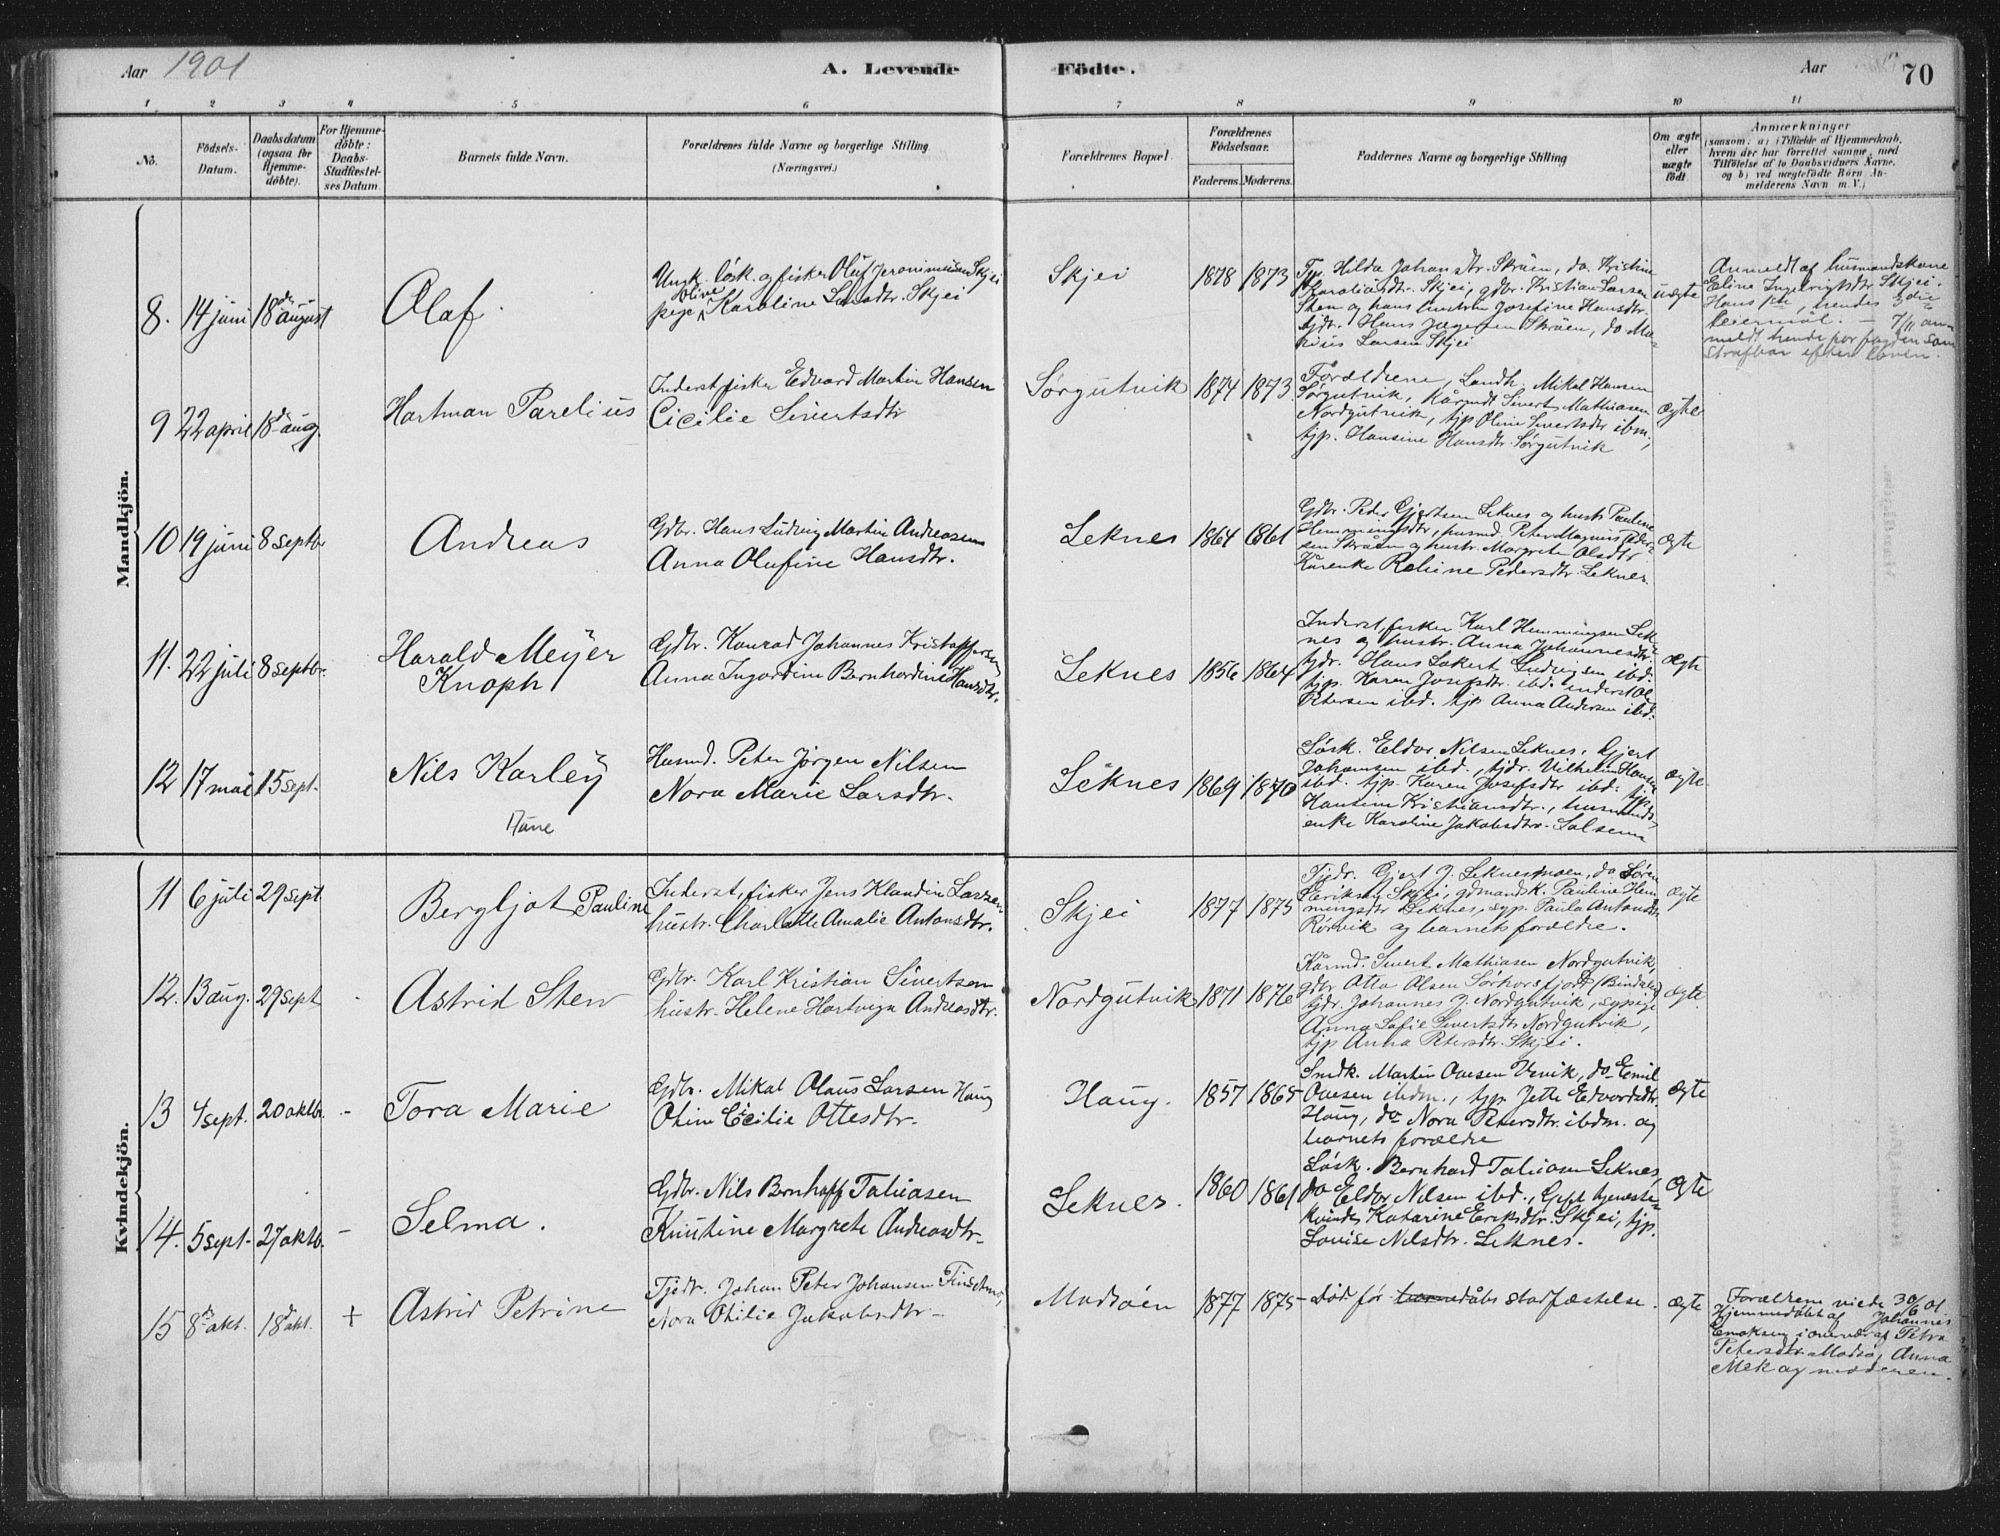 Aar 1901
A. Levende
Födte.
Aar
70
1 2 3 4 5 6 7 8 9 10 11
No.
Födsels-
Datum.
Daabsdatum
(ogsaa for
Hjemme-
döbte).
For Hjemme-
döbte:
Daabs-
Stadfæstel-
ses Datum.
Barnets fulde Navn.
Forældrenes fulde Navne og borgerlige Stilling
(Næringsvei.)
Forældrenes Bopæl.
Forældrenes
Födselsaar.
Faderens. Moderens.
Faddernes Navne og borgerlige Stilling
Om ægte
eller
uægte
födt.
Anmærkninger
(saasom: a) i Tilfælde af Hjemmedaab,
hvem der har forrettet samme, med
Tilföielse af to Daabsvidners Navne,
og b) ved uægtefödte Börn An-
melderens Navn m. V.)
Mandkjön.
8. 14 juni 18de august
Olaf.
Ungk. løsk. og fisker Oluf Jeronimusen Skjei
pige Oline Karoline Larsdtr. Skjei
Skjei
1878 1873
Hilda Johansdtr. Skrüen, do. Kristine
Skjei, gdbr. Kristian Larsen
og hans hustru Josefine Hansdtr.
tjdr. Hans Skrüen, do Ma-
rius Larsen Skjei
uægte
Anmeldt af husmandskone
Eline Ingebrigtsdtr Skjei.
Hans 1ste, hendes 3die
leiermål. - 7/11 an-
meldt hende for fogden som
strafbar efter loven.
9 22 april 18de aug.
Hartman Parelius
Inderst, fisker Edvard Martin Hansen
Cicilie Sivertsdtr
Sørgutvik
1874 1873
Forældrene, Landh. Mikal Hansen
Sørgutvik, Kårmd. Sivert Mathiasen
Nordgutvik, tjp Oline Sivertsdtr ibm.,
tjp. Hansine Hansdtr. Sørgutvik
ægte
10 19 juni 8 septbr
Andreas
Gdbr. Hans Ludvig Martin Andreasen
Anna Olufine Hansdtr.
Leknes
1864 1861
Gdbr. Peder Gjertsen Leknes og hustr Pauline
Hemmingsdtr, husmd. Peter Magnus Peder-
sen Skrüen og hustr. Margrete Olsdtr
Kårenke Peline Pedersdtr. Leknes.
ægte
11. 22 juli 8 septbr.
Harald Meyer
Knoph
Gdbr. Konrad Johannes Kristoffersen
Anna Ingardine Bernhardine Hansdtr.
Leknes
1856 1864
Inderst, fisker Karl Hemmingsen Lek-
nes og hustr. Anna Johannesdtr.
tjdr. Hans Lakert Ludvigsen ibd.
tjp. Karen Josefsdtr. ibd. inderst Ole
Petersen ibd. tjp Anna Andersen ibd.
ægte
12 17 mai 15 sept.
Nils Karley
Husmd. Peter Jørgen Nilsen
Nora Marie Larsdtr.
Leknes
1869 1870
Løsk. Eldor Nilsen Leknes, Gjert
Johansen ibd., tjdr. Vilhelm Hansen
ibd. tjp. Karen Josefsdtr ibd. tjp.
Hansine Kristiansdtr., husmands-
enke Karoline Jakobsdtr. Salsem
ægte.
Kvindekjön.
11 6 juli 29 sept
Bergljot Pauline
Inderst, fisker Jens Klaudin Larsen
hustr. Charlotte Amalie Antonsdtr.
Skjei
1877 1875
Tjdr. Gjert J. Leknesmoen, do Søren
Eriksen Skjei, gdmandsk. Pauline Hem-
mingsdtr Leknes, syp. Paula Antonsdtr
Rørvik og barnets forældre.
ægte
12. 13 aug. 29 sept
Astrid Sten
Gdbr. Karl Kristian Sivertsen
hustr. Helene Hartviga Andreasdtr.
Nordgutvik
1871 1876
Kårmd. Sivert Mathiasen Nordgutvik,
gdbr Otto Olsen Sørhorsfjord (Bindalen)
tjdr. Johannes J. Nordgutvik, sypige
Anna Sofie Sivertsdtr Nordgutvik,
tjp Anna Petersdtr. Skjei.
ægte.
13 4 sept. 20 oktb. -
Tora Marie
Gdbr. Mikal Olaus Larsen Haug
Otine Cecilie Ottesdtr.
Haug.
1857 1865
Smdk. Martin Ovesen Vevik, do Emil
Ovesen ibdm., tjp. Jette Edvardsdtr.
Haug, do Nora Petersdtr. ibdm. og
barnets forældre
ægte
14. 5 sept. 27 oktb. -
Selma.
Gdbr. Nils Bernhoff Tobiasen
Kristine Margrete Andreasdtr.
Leknes.
1860 1861
Løsk. Bernhard Tobiasen Leknes,
do Eldor Nilsen ibd., Gift tjeneste-
kvinde Katarine Eriksdtr. Skjei, tjp.
Lovise Nilsdtr. Leknes.
ægte
15 8de okt. 18d okt. +
Astrid Petrine
Tjedr. Johan Peter Johansen
Nora Otilie Jakobsdtr.
Madsøen
1877 1875
Død før dåbs stadfæstelse.
ægte
Forældrene viede 30/6 01.
Hjemmedøbt af Johannes
Enoksen i overvær af Petra
Petersdtr Madsø, Anna
Mek og moderen.